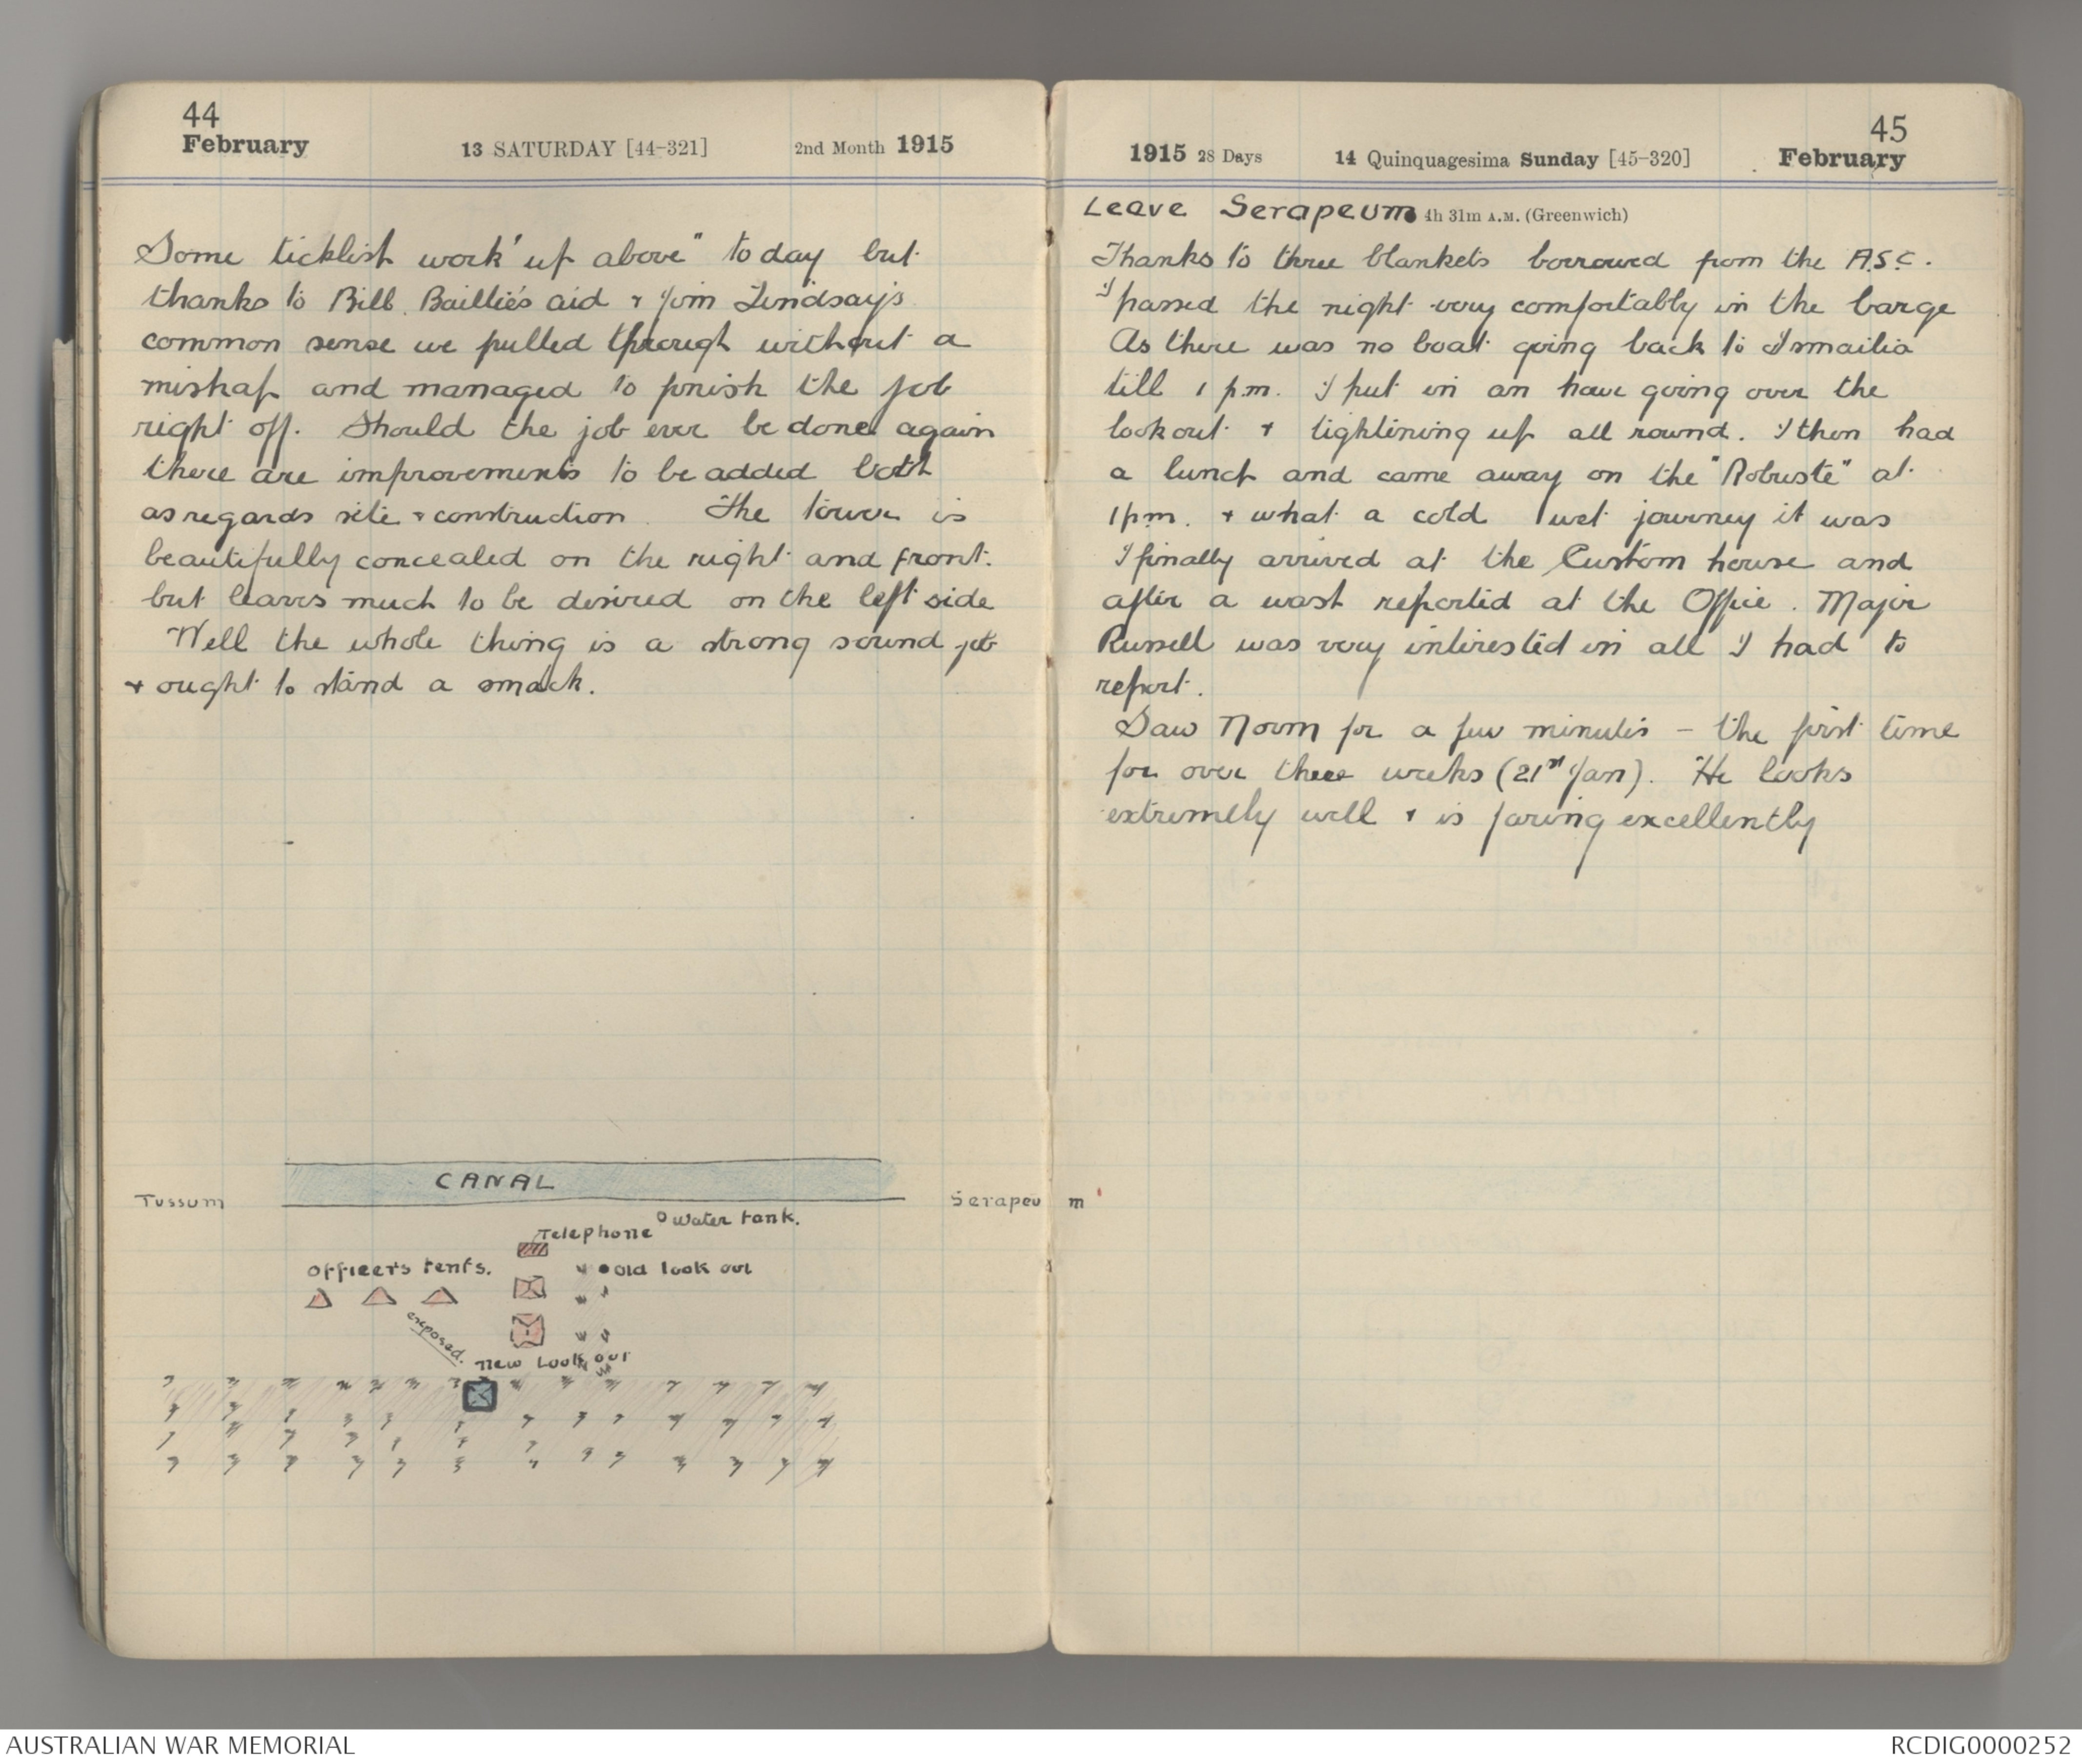 44
February 13 SATURDAY [44-321] 2nd Month 1915
Some ticklish work "up above" today but
thanks to Bill Baillie's aid & Jim Lindsay's
common sense we pulled through without a
mishap and managed to finish the job
right off. Should the job ever be done again
there are improvements to be added both
as regards site & construction. The tower is
beautifully concealed on the right and front.
but leaves much to be desired on the left side
Well the whole thing is a strong sound job
& ought to stand a smack.
CANAL
Tussum
Serapeum
Telephone
Water tank.
Officers tents.
Old look out
exposed.
New Look out
45
1915 28 Days 14 Quinquagesima Sunday [45-320] February
Leave Serapeum 4h 31m A.M. (Greenwich)
Thanks to three blankets borrowed from the A.S.C.
I passed the night very comfortably in the barge
As there was no boat going back to Ismailia
till 1 p.m. I put in an hour going over the
lookout & tightening up all round. I then had
a lunch and came away on the "Robuste" at
1pm. & what a cold wet journey it was
I finally arrived at the Custom house and
after a wash reported at the Office. Major
Russell was very interested in all I had to
report.
Saw Norm for a few minutes - the first time
for over three weeks (21st Jan). He looks
extremely well & is faring excellently
AUSTRALIAN WAR MEMORIAL
RCDIG0000252